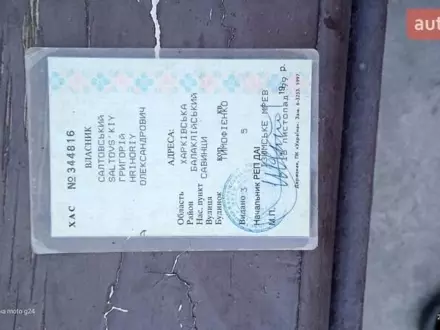 ХАС № 344816
ВЛАСНИК
САЛТОВСЬКИЙ
SALTOVS'KIY
ГРИГОРІЙ
HRIHORIY
ОЛЕКСАНДРОВИЧ
АДРЕСА:
Область ХАРКІВСЬКА
Район БАЛАКЛІЙСЬКИЙ
Нас. пункт САВИНЦІ
Вулиця ТИМОФІЄНКО
Будинок кор. кв. 5
Видано З МРЕВ
Начальник РЕП ДАІ
М.П. 18 ЛИСТОПАД 19 р.
auto.
moto g24